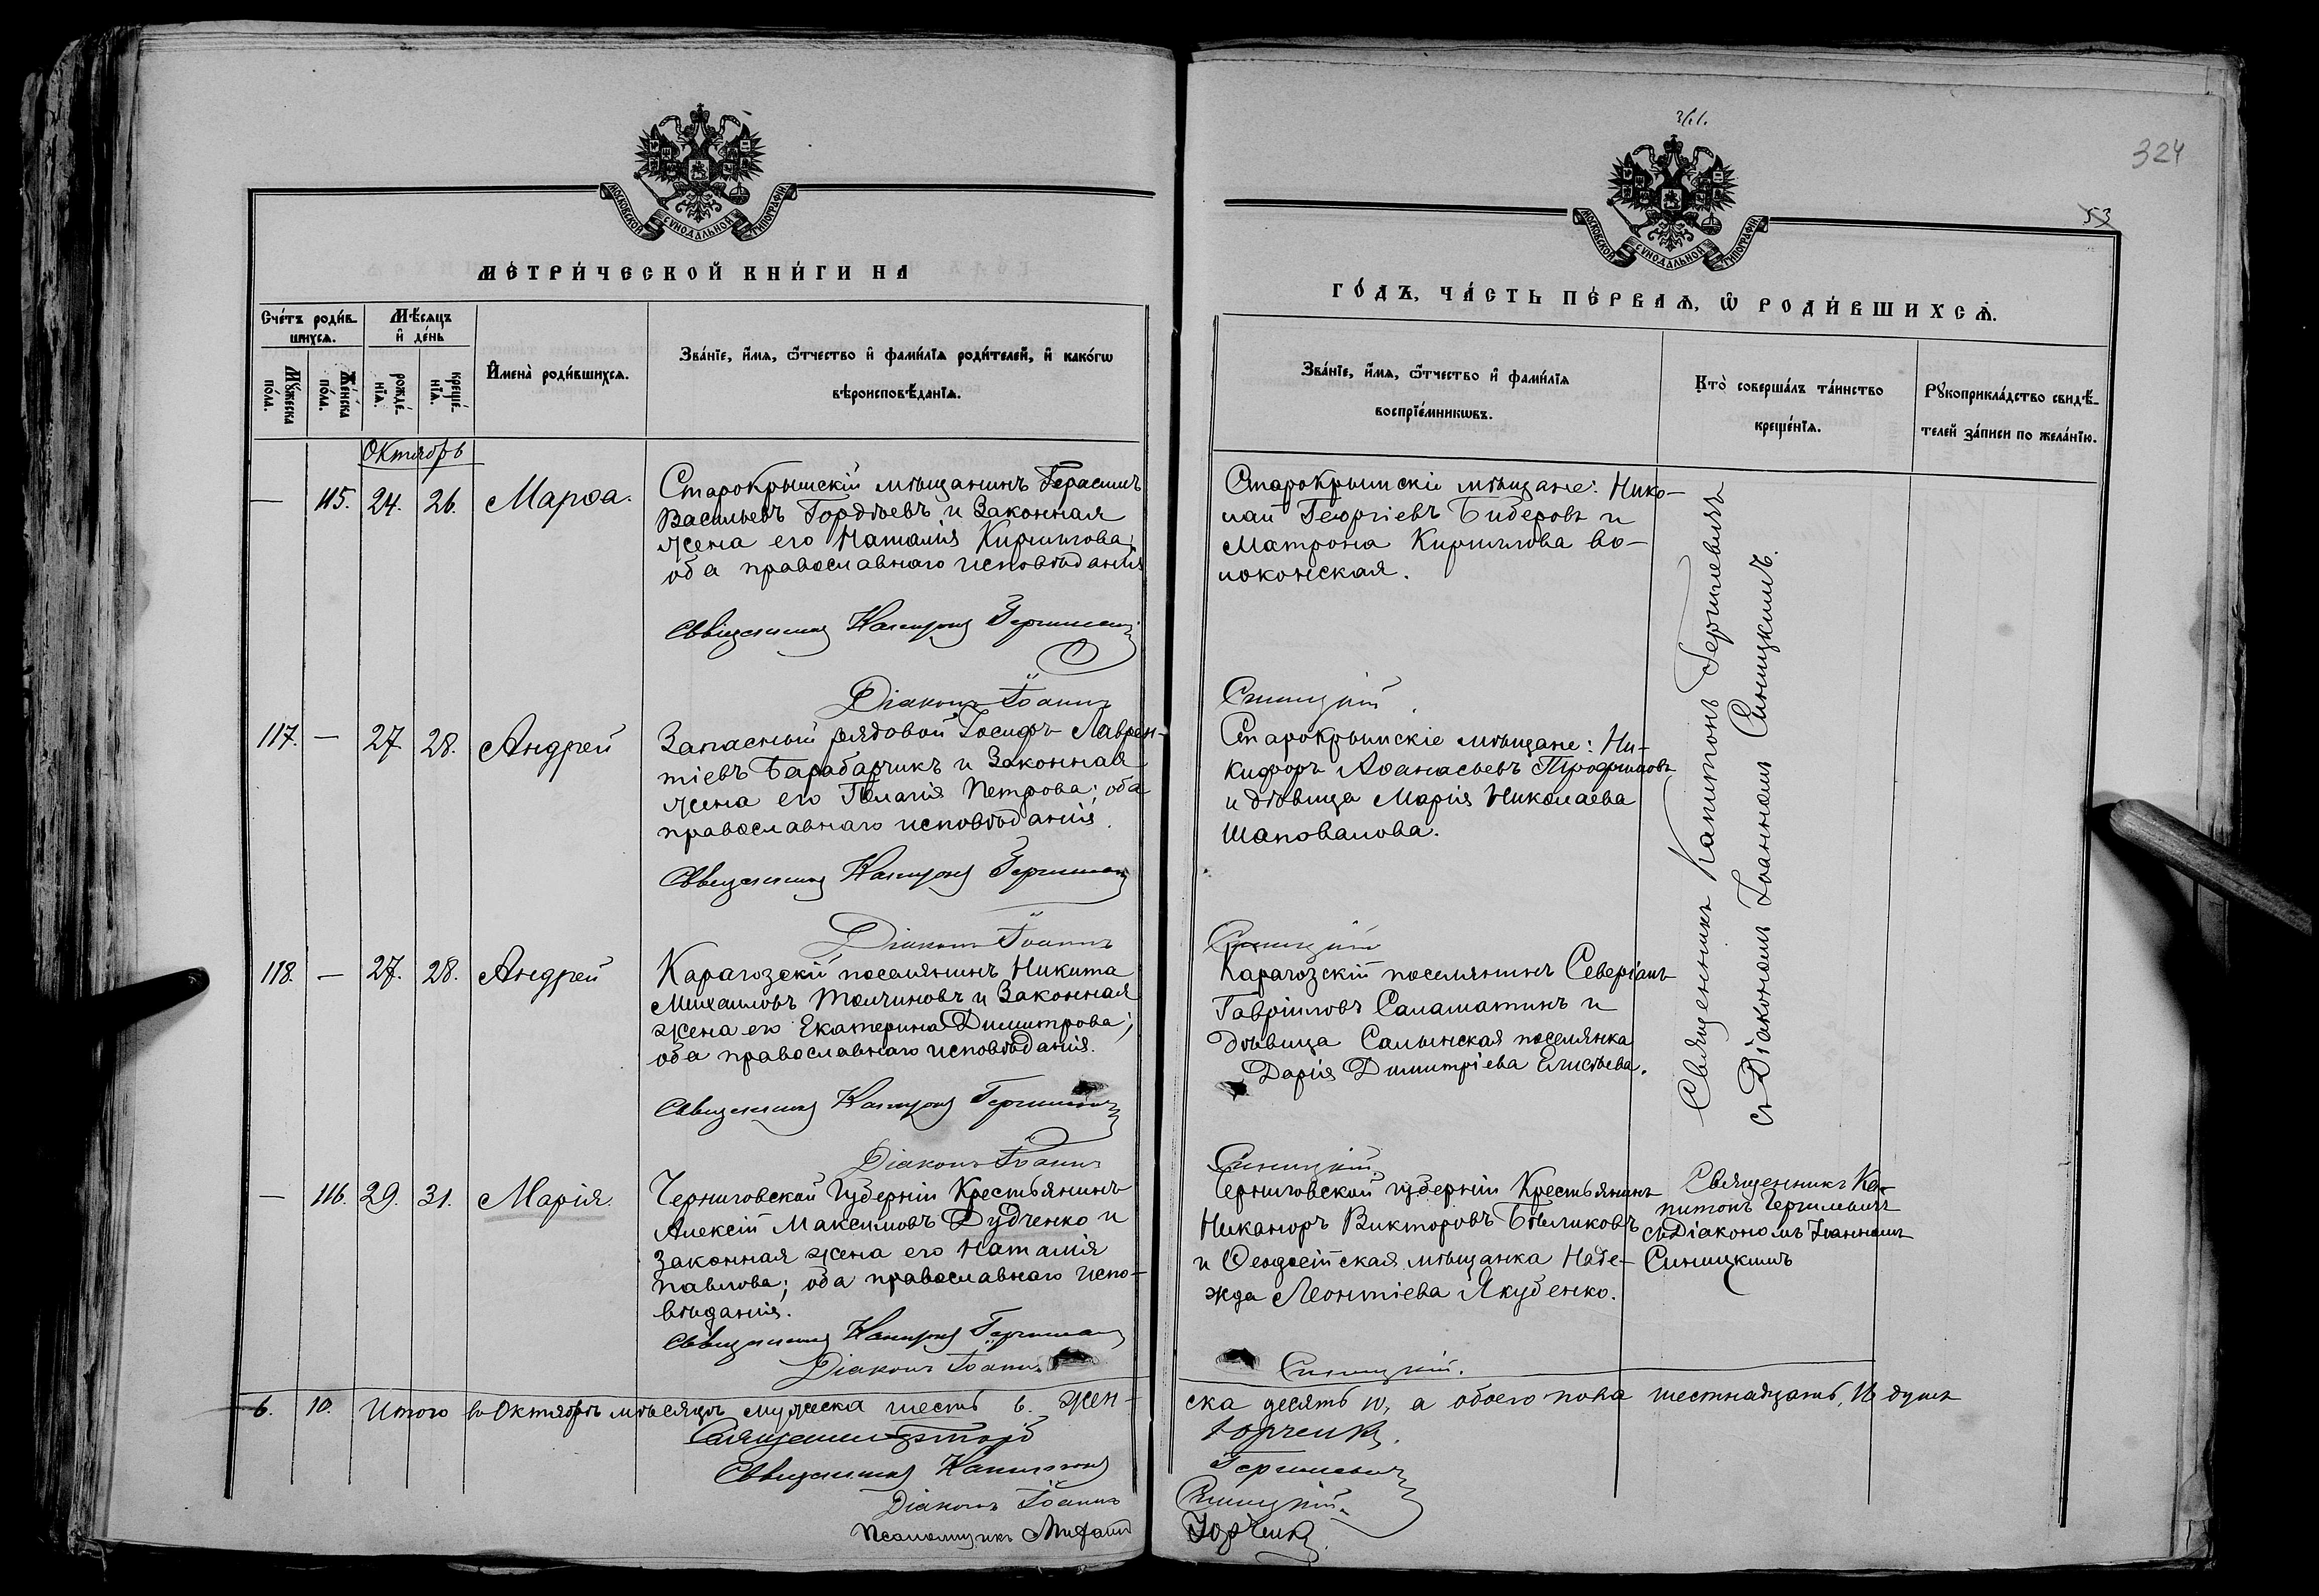 МОСКОВСКОЙ СѴНОДАЛЬНОЙ ТИПОГРАФІИ
МЕТРИ́ЧЕСКОЙ КНИ́ГИ НА
Сче́тъ роди́в-
шихсѧ.
Мѣ́сяцъ
и҆ де́нь
Мꙋ́жеска
по́ла.
Же́нска
по́ла.
рожде́-
нїѧ.
креще́-
нїѧ.
И҆мена̀ роди́вшихсѧ.
Зва́нїе, и҆́мѧ, ѻ҆́тчество и҆ фами́лїѧ роди́телей, и҆ како́гѡ
вѣроисповѣ́данїѧ.
Октябрь
— 115. 24. 26. Марѳа.
Старокрымскій мѣщанинъ Герасимъ
Васильевъ Гордѣевъ и законная
жена его Наталія Кириллова;
оба православнаго исповѣданія
Священникъ Капитонъ Гергилевичъ
Діаконъ Іоаннъ
117. — 27. 28. Андрей
Запасный рядовой Іосифъ Лаврен-
тіевъ Барабарчикъ и законная
жена его Пелагія Петрова; оба
православнаго исповѣданія.
Священникъ Капитонъ Гергилевичъ
Діаконъ Іоаннъ
118. — 27. 28. Андрей
Карагозскій поселянинъ Никита
Михаиловъ Толчиновъ и законная
жена его Екатерина Димитрова;
оба православнаго исповѣданія.
Священникъ Капитонъ Гергилевичъ
Діаконъ Іоаннъ
— 116. 29. 31. Марія.
Черниговской губерніи крестьянинъ
Алексій Максимовъ Дудченко и
законная жена его Наталія
Павлова; оба православнаго испо-
вѣданія.
Священникъ Капитонъ Гергилевичъ
Діаконъ Іоаннъ
6. 10. Итого въ Октябрѣ мѣсяцѣ мужеска шесть 6. жен-
Священникъ Капитонъ
Діаконъ Іоаннъ
Псаломщикъ
324
53
МОСКОВСКОЙ СѴНОДАЛЬНОЙ ТИПОГРАФІИ
ГО́ДЪ, ЧА́СТЬ ПЕ́РВАѦ, Ѡ҆ РОДИ́ВШИХСѦ.
Зва́нїе, и҆́мѧ, ѻ҆́тчество и҆ фами́лїѧ
воспрїе́мникѡвъ.
Кто̀ соверша́лъ та́инство
креще́нїѧ.
Рꙋкоприкла́дство свидѣ́-
телей за́писи по жела́нїю.
Старокрымскіе мѣщане: Нико-
лай Георгіевъ Биберовъ и
Матрона Кириллова Во-
локонская.
Синицкій.
Старокрымскіе мѣщане: Ни-
кифоръ Аѳанасьевъ Трофимовъ
и дѣвица Марія Николаева
Шаповалова.
Синицкій
Карагозскій поселянинъ Северіанъ
Гавріиловъ Саламатинъ и
дѣвица Салынская поселянка
Дарія Димитріева Елисѣева.
Синицкій.
Черниговской губерніи крестьянинъ
Никаноръ Викторовъ Бѣликовъ
и Ѳеодосійская мѣщанка Наде-
жда Леонтіева Якубенко.
Синицкій.
Священникъ Капитонъ Гергилевичъ
съ Діакономъ Іоанномъ Синицкимъ.
Священникъ Ка-
питонъ Гергилевичъ
съ Діакономъ Іоанномъ
Синицкимъ
ска десять 10, а обоего пола шестнадцать, 16 душъ
Юрченко.
Гергилевичъ
Синицкій.
Юрченко